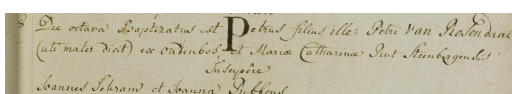 8 Die octava Baptizatus est Petrus filius ille: Petri van Rosendaal
(ute mater dicit) ex oudenbos et Mariæ Catharinæ Rut Steenbergensis
Susceptôre
Joannes Schram et Joanna Rubbens